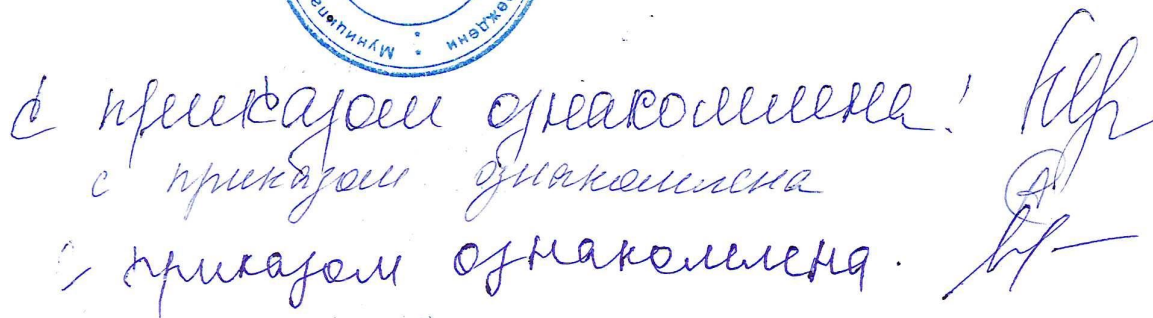 Муниципа
реждени
С приказом ознакомлена!
с приказом ознакомлена
с приказом ознакомлена.